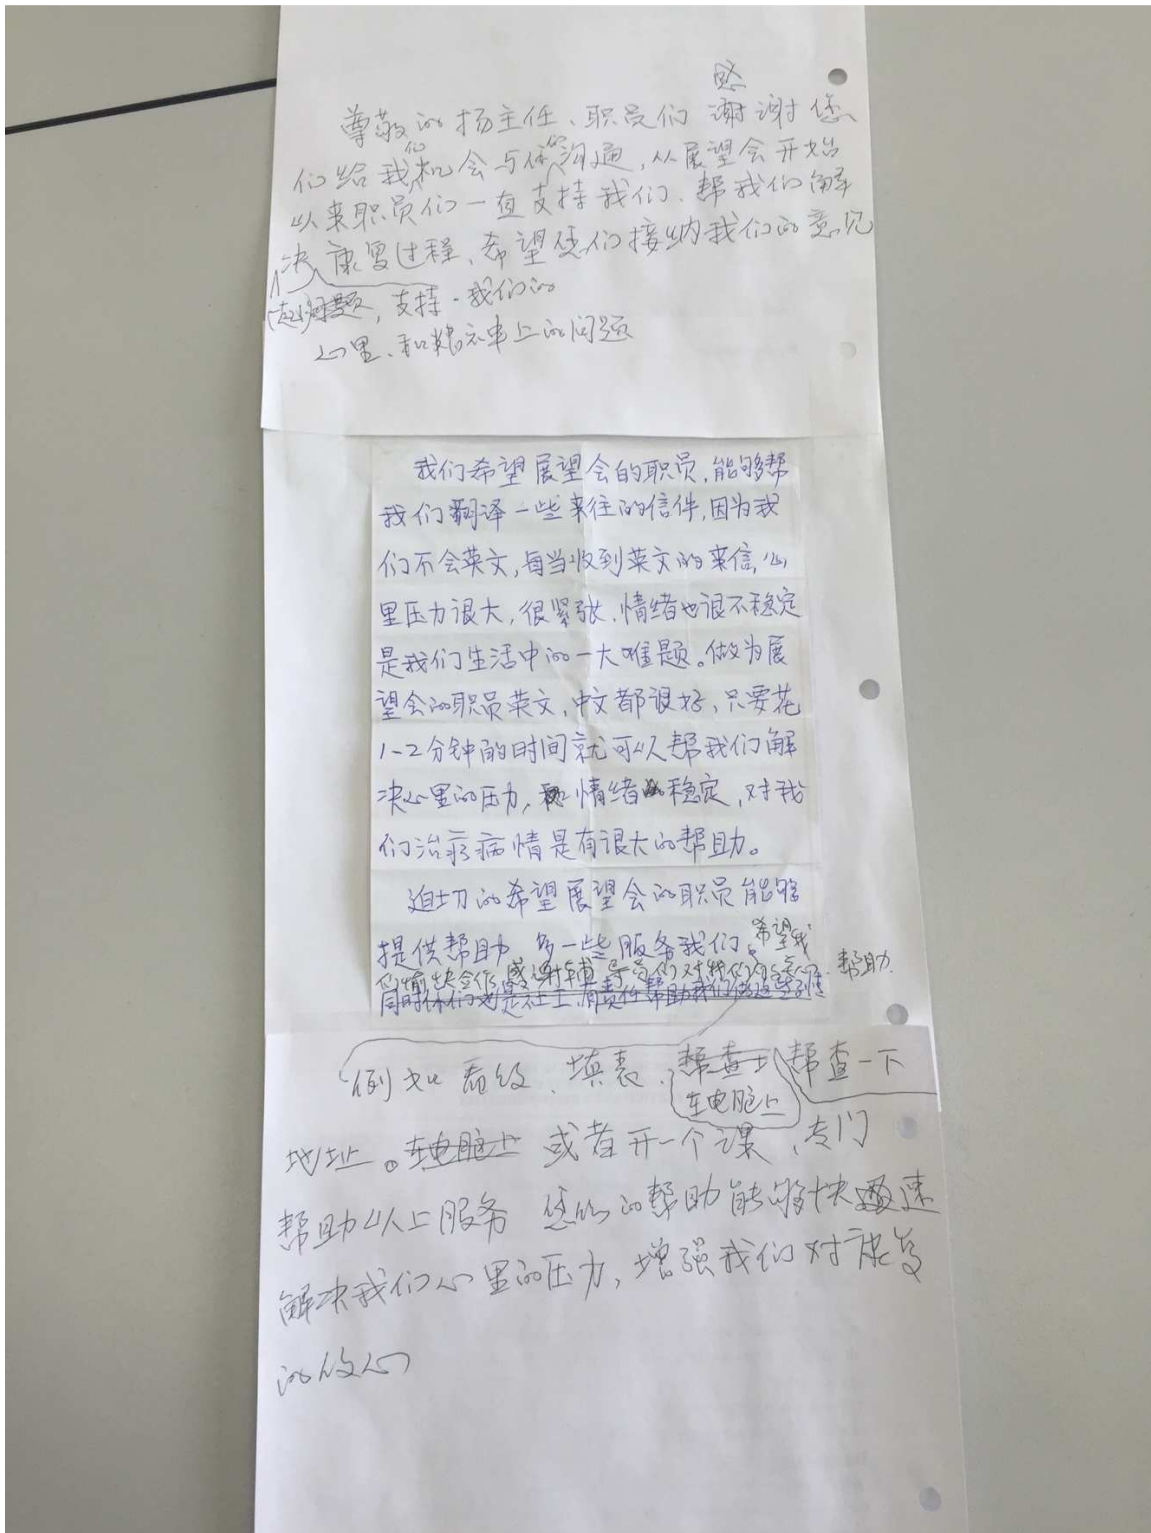 感
尊敬的扬主任、职员们 谢谢您
们
们给我机会与你沟通,从展望会开始
以来职员们一直支持我们、帮我们解
决康复过程、希望您们接纳我们的意见
问题,支持·我们的
心里、和精神上的问题
我们希望展望会的职员,能够帮
我们翻译一些来往的信件,因为我
们不会英文,每当收到英文的来信,心
里压力很大,很紧张、情绪也很不稳定
是我们生活中的一大难题。做为展
望会的职员英文、中文都很好,只要花
1-2分钟的时间就可以帮我们解
决心里的压力,和情绪稳定,对我
们治疗病情是有很大的帮助。
迫切的希望展望会的职员能够
提供帮助 多一些服务我们。希望我
们愉快合作 感谢辅导员们对我们的 帮助
同时你们也是社工,有责任帮助我们做这些事情
例如看纹、填表、帮查一下
在电脑上
地址。在电脑上 或者开一个课、专门
帮助以上服务 您们的帮助能够快速
解决我们心里的压力,增强我们对康复
的信心